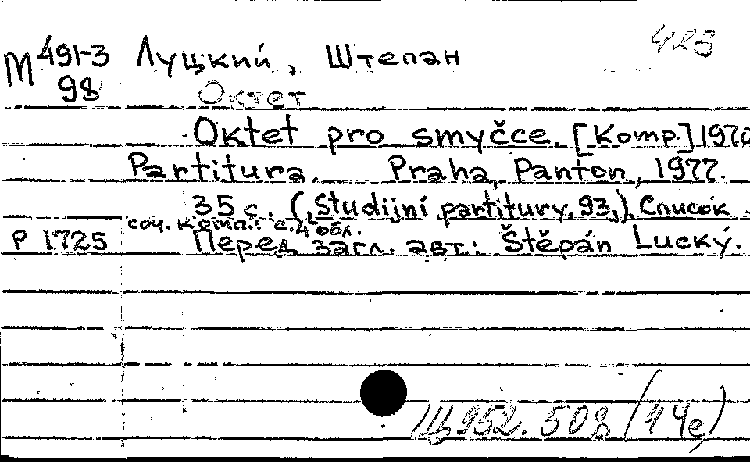 М 491-3 Луцкий, Штепан 423
98 Октет
Oktet pro smyčce. [Komp.] 1970
Partitura. Praha, Panton, 1977.
35 с. („Studijní partitury, 93„) Список
соч. комп.: с. 4 обл.
Р 1725 Перед загл. авт.: Štěpán Lucký.
Щ952.508 (4Че)